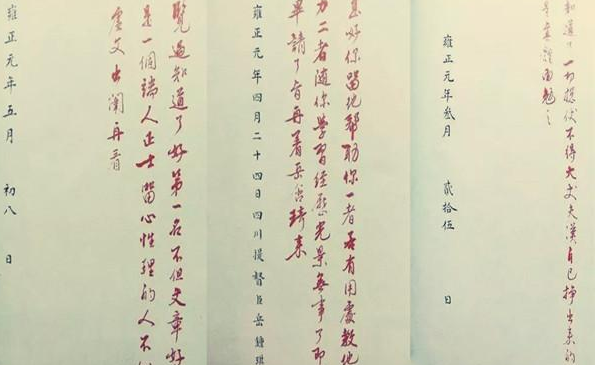 知道了一切 不得大丈夫漢自己掙出來的
面勉之
雍正元年叁月 貳拾伍 日
好你留他幫助你一者若有用處教他
力二者隨你學習經歷光景無事了即
畢請了旨再著岳含琦來
雍正元年四月二十四日四川提督臣岳鍾琪
覽過知道了好第一名不但文章好
是一個端人正士留心性理的人不
虛文出闈再看
雍正元年五月 初八 日